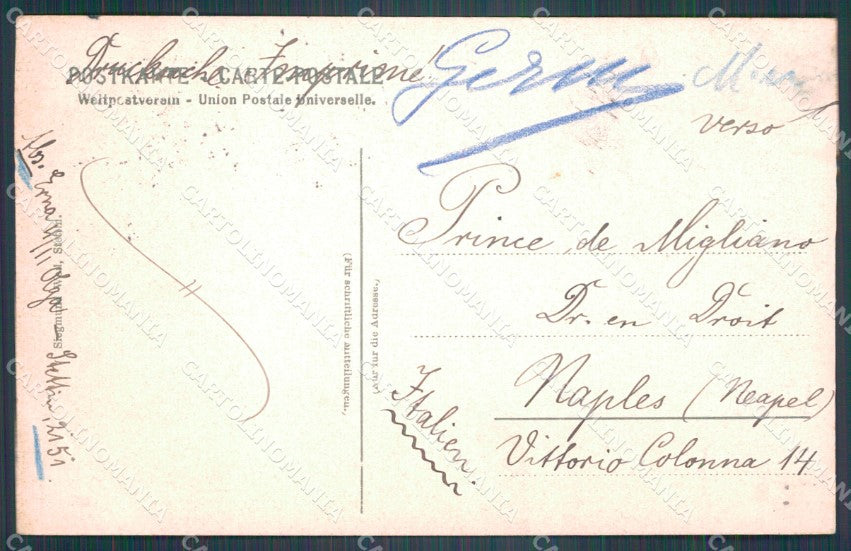 Drucksache Imprimé
POSTKARTE - CARTE POSTALE
Weltpostverein - Union Postale Universelle.
verso
Prince de Migliano
Dr. en Droit
Naples (Neapel)
Vittorio Colonna 14
Italien.
(Nur für die Adresse.)
(Für schriftliche Mitteilungen.)
Abs. Erna
Stettin
CARTOLINOMANIA